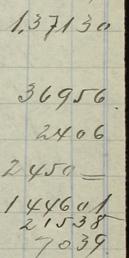 1,37130
36956
2406
2450=
144601
21538
7039